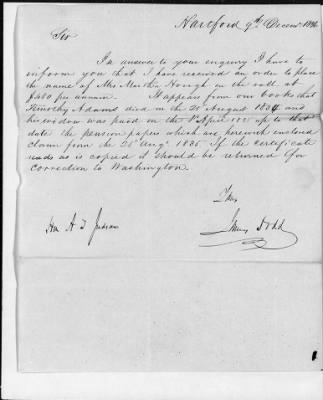 Hartford 9th Decem
Sir
In answer to your enquiry I have to
inform you that I have received an order to place
the name of Mrs Martha Hough on the roll at
$480 per annum. It appears from our books that
Timothy Adams died on the 20 August 1834 and
his widow was paid on the April up to that
date the pension papers which are herewith enclosed
claim from the Augt 1835 If the certificate
reads as is copied it should be returned for
correction to Washington.
Yours
James Dodd
Hon A T Judson